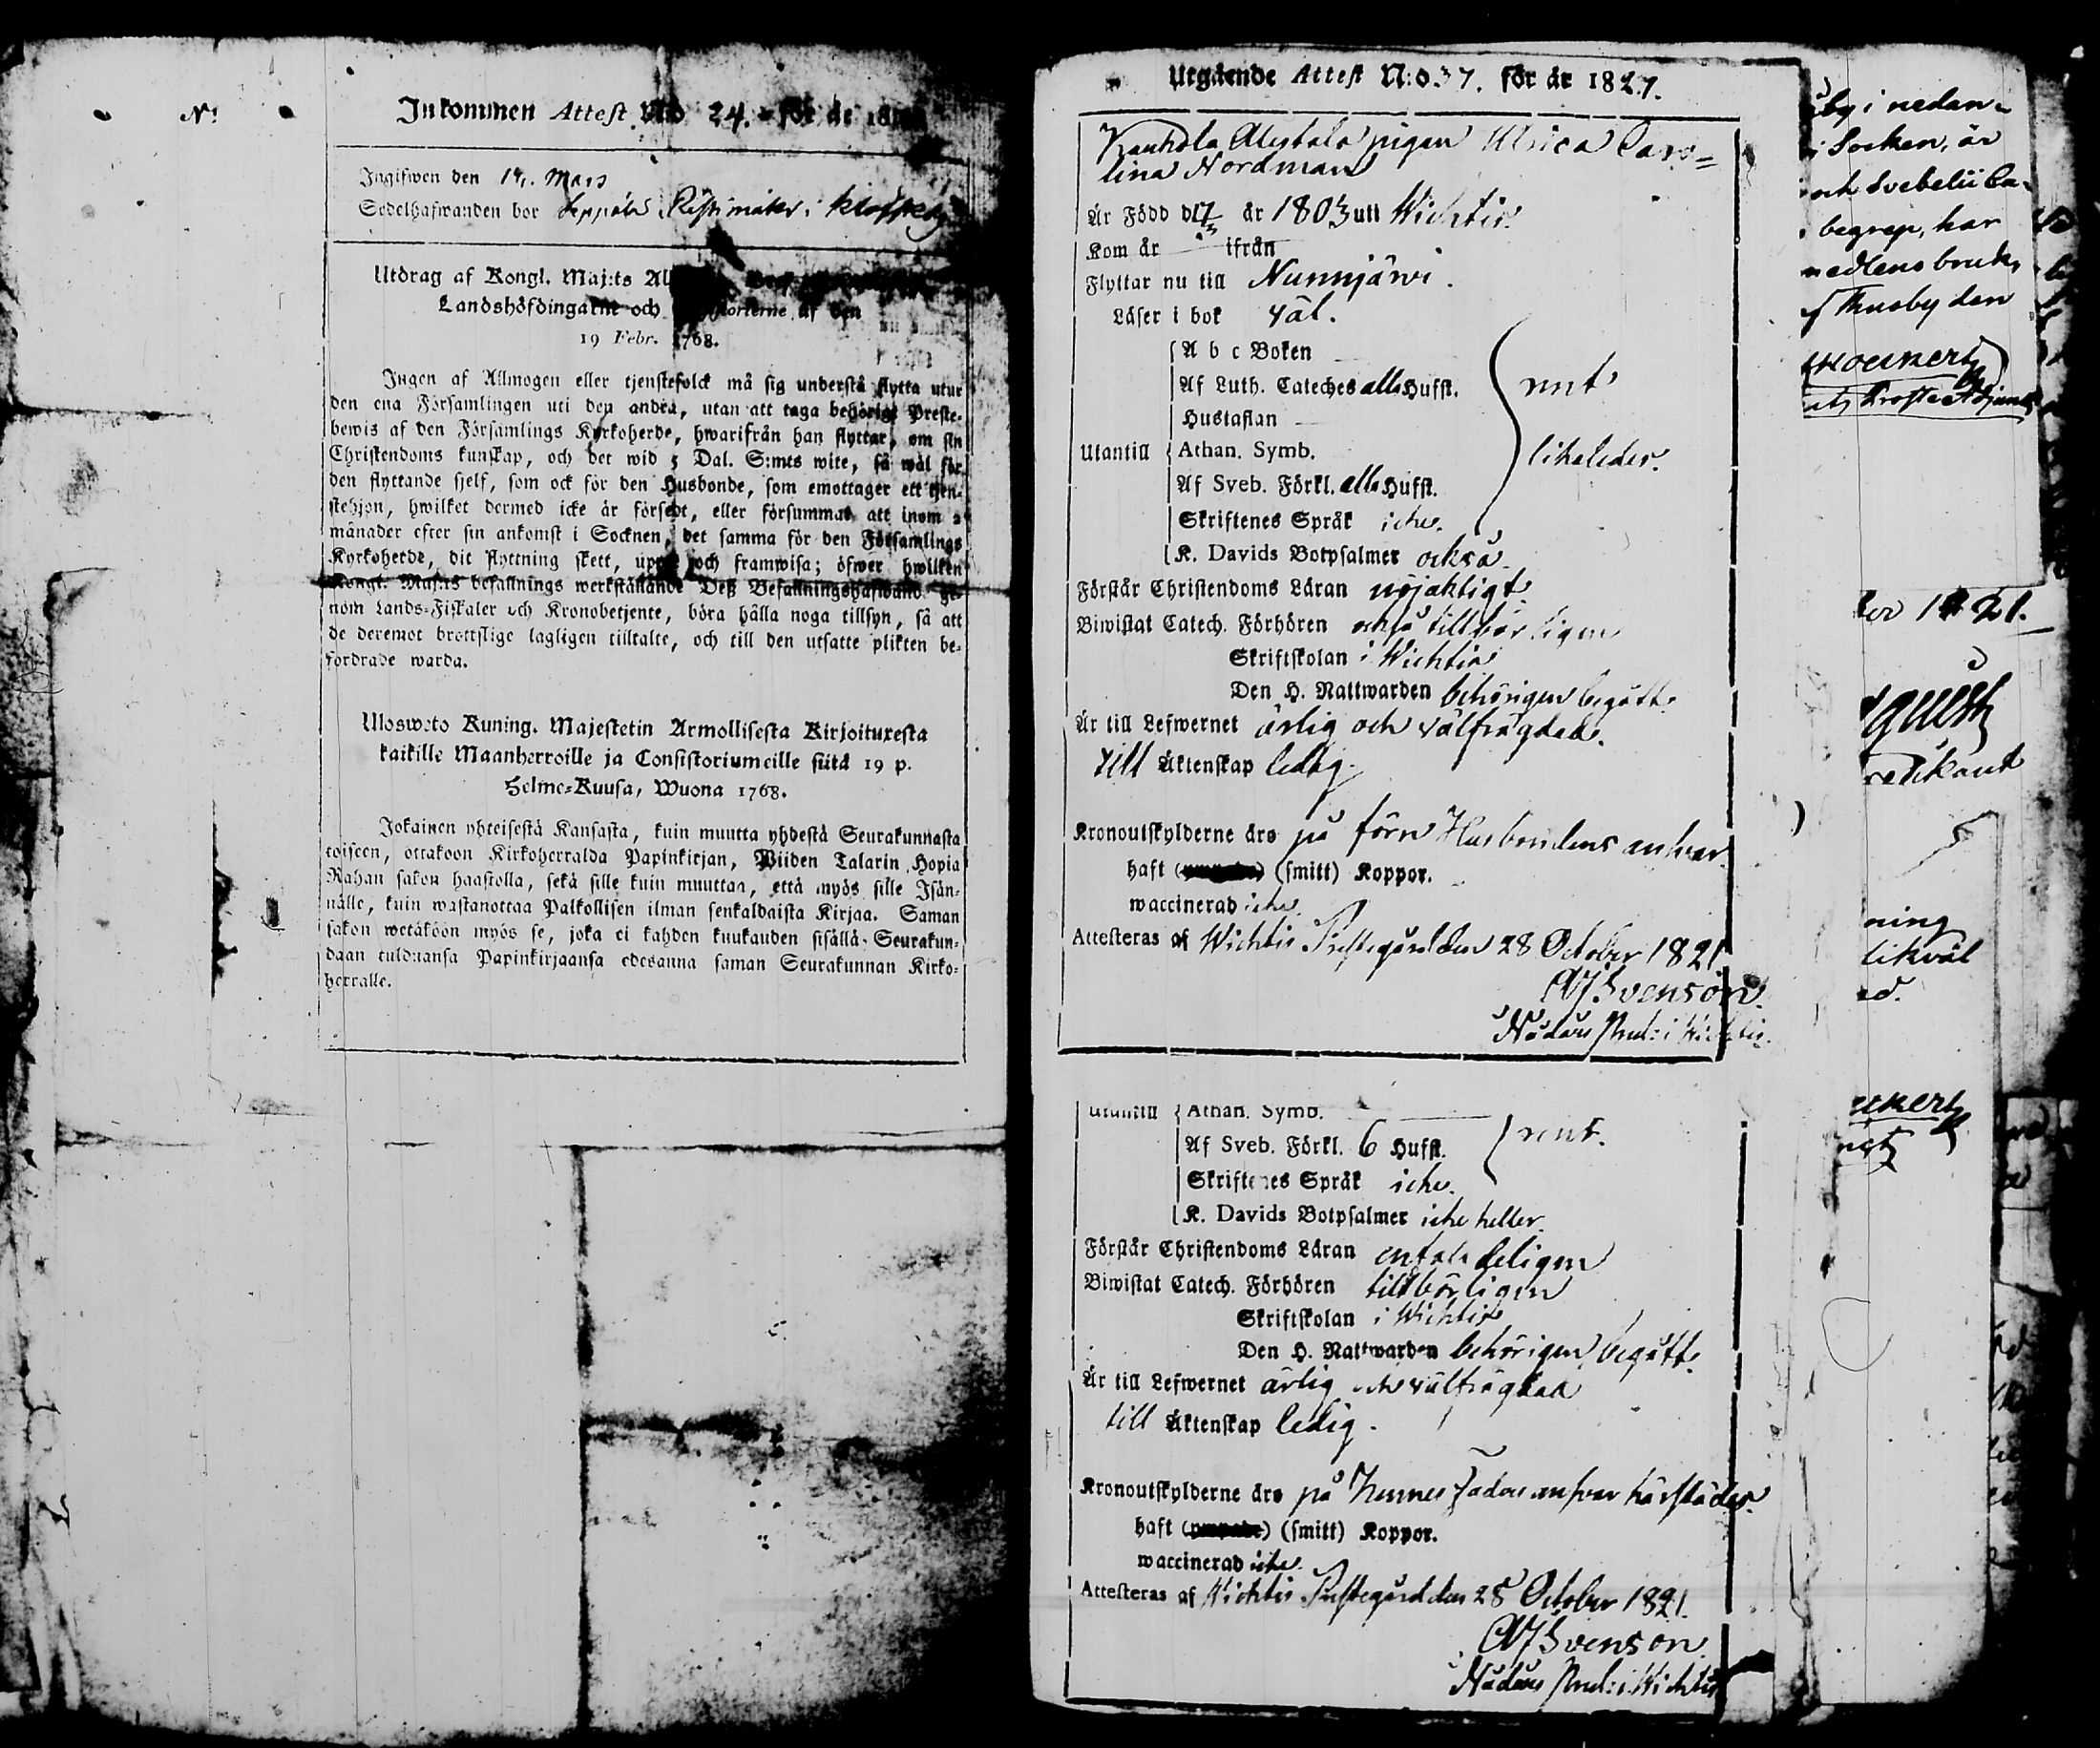 N:
Inkommen Attest N:o 24. för år 18
Ingifwen den 14. Mars
Sedelhafwanden bor Seppälä i
Utdrag af Kongl. Maj:ts
Landshöfdingarne och af den
19 Febr. 1768.
Ingen af Allmogen eller tjenstefolck må sig understå flytta utur
den ena Församlingen uti den andra, utan att taga behörigt Preste-
bewis af den Församlings Kyrkoherde, hwarifrån han flyttar, om sin
Christendoms kunskap, och det wid 5 Dal. S:mts wite, så wäl för
den flyttande sjelf, som ock för den Husbonde, som emottager ett tjen-
stehjon, hwilket dermed icke är försedt, eller försummat att inom 2
månader efter sin ankomst i Socknen, det samma för den Församlings
Kyrkoherde, dit flyttning skett, uppte och framwisa; öfwer hwilken
Kongl. Maj:ts befallnings werkställande Deß Befallningshafwand. ge-
nom Lands-Fiskaler och Kronobetjente, böra hålla noga tillsyn, så att
de deremot brottslige lagligen tilltalte, och till den utsatte plikten be-
fordrade warda.
Ulosweto Kuning. Majestetin Armollisesta Kirjoituxesta
kaikille Maanherroille ja Consistoriumeille siitä 19 p.
Helme-Kuusa, Wuona 1768.
Jokainen yhteisestä Kansasta, kuin muutta yhdestä Seurakunnasta
toiseen, ottakoon Kirkoherralda Papinkirjan, Wiiden Talarin Hopia
Rahan sakon haastolla, sekä sille kuin muuttaa, että myös sille Isän-
nälle, kuin wastanottaa Palkollisen ilman senkaldaista Kirjaa. Saman
sakon wetäköön myös se, joka ei kahden kuukauden sisällä, Seurakun-
daan tulduansa Papinkirjaansa edesanna saman Seurakunnan Kirko-
herralle.
Utgående Attest N:o 37. för år 1821.
Alestalo pigan Ulrica Caro=
lina Nordman
År Född d 17/3 år 1803 uti Wichtis.
Kom år — ifrån —
Flyttar nu till Nunnjärwi.
Läser i bok väl.
A b c Boken
Af Luth. Cateches alla Hufst.
rent
Hustaflan
Utantill Athan. Symb.
likaledes.
Af Sveb. Förkl. alla Hufst.
Skriftenes Språk icke.
K. Davids Botpsalmer också
Förstår Christendoms Läran nöjaktigt
Biwistat Catech. Förhören också tillbörligen
Skriftskolan i Wichtis
Den H. Nattwarden behörigen begått.
Är till Lefwernet ärlig och välfrägdad.
till Äktenskap ledig.
Kronoutskylderne äro på förra Husbondens answar.
haft (smitt) Koppor.
waccinerad icke
Attesteras af Wichtis Prestegård den 28 October 1821
Svenson
Nådårs Pred: i Wichtis.
Utantill Athan. Symb.
Af Sveb. Förkl. 6 Hufst.
rent.
Skriftenes Språk icke.
K. Davids Botpsalmer icke heller.
Förstår Christendoms Läran enfaldeligen
Biwistat Catech. Förhören tillbörligen
Skriftskolan i Wichtis
Den H. Nattwarden behörigen begått.
Är till Lefwernet ärlig och välfrägdad
till Äktenskap ledig.
Kronoutskylderne äro på hennes Faders answar härstädes.
haft (smitt) Koppor.
waccinerad icke.
Attesteras af Wichtis Prestegård den 28 October 1821.
Svenson
Nådårs Pred: i Wichtis
by i nedan-
i Socken, är
och Svebelii Ca-
begrep, har
medlens bruk,
af Thusby den
1821.
ning
likväl
ed.